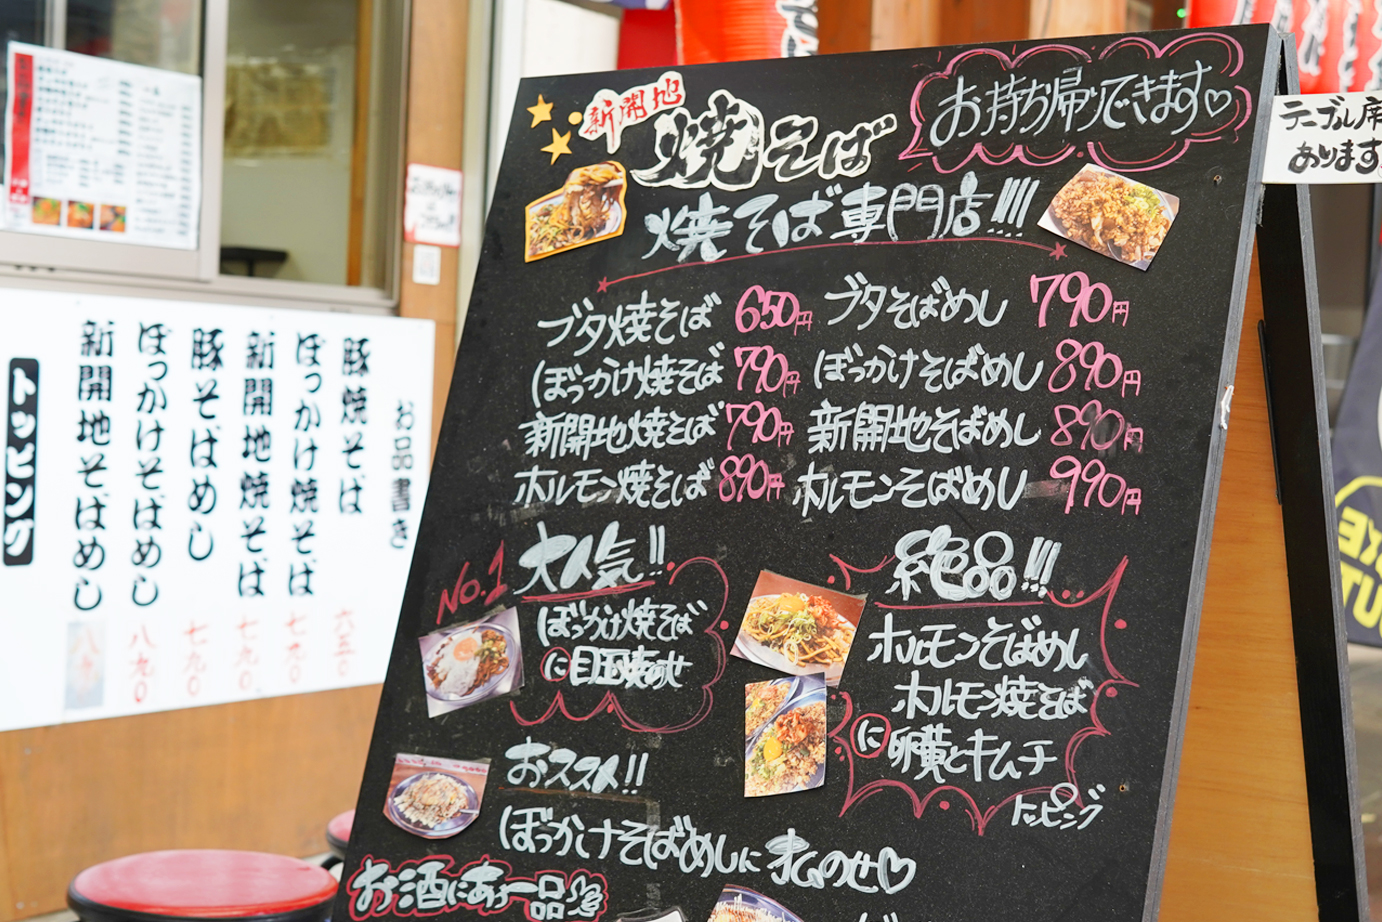 新開地
焼そば
お持ち帰りできます♡
焼そば専門店!!!
ブタ焼そば 650円
ぼっかけ焼そば 790円
新開地焼そば 790円
ホルモン焼そば 890円
ブタそばめし 790円
ぼっかけそばめし 890円
新開地そばめし 890円
ホルモンそばめし 990円
No.1 大人気!!
ぼっかけ焼そば
に目玉焼のせ
絶品!!!
ホルモンそばめし
ホルモン焼そば
に卵黄とキムチ
トッピング
おススメ!!
ぼっかけそばめしにオムのせ♡
お酒にあう一品
テーブル席
あります
お品書き
豚焼そば 六五〇
ぼっかけ焼そば 七九〇
新開地焼そば 七九〇
豚そばめし 七九〇
ぼっかけそばめし 八九〇
新開地そばめし
トッピング